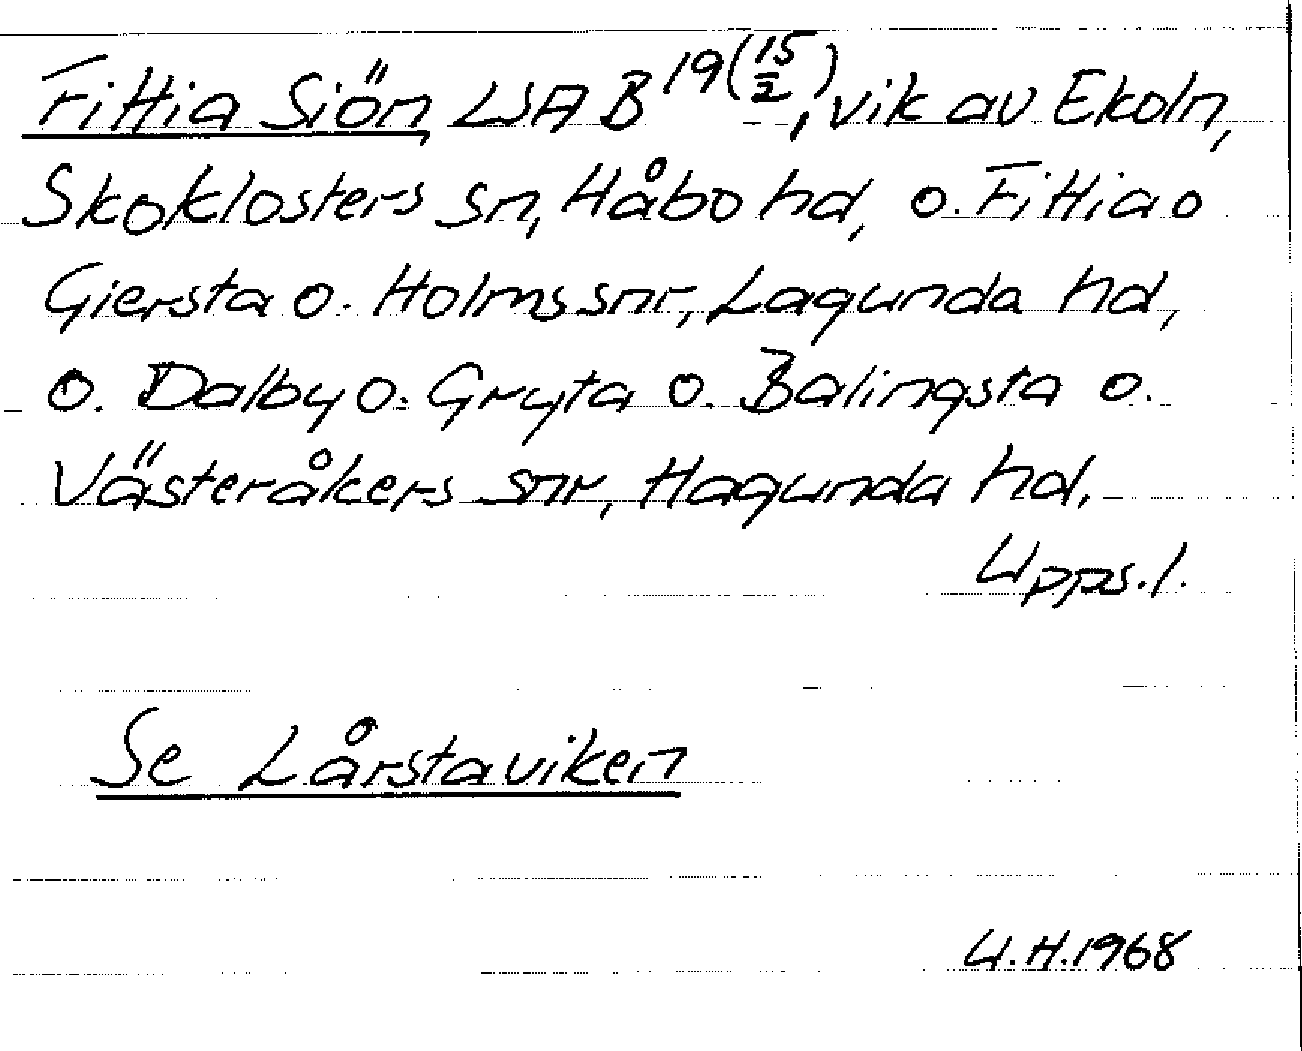 Fittia Siön, LSA B19(15/2), vik av Ekoln,
Skoklosters sn, Håbo hd, o. Fittia o
Giersta o. Holms snr, Lagunda hd,
o. Dalby o. Gryta o. Balingsta o.
Västeråkers snr, Hagunda hd.
Upps. l.
Se Lårstaviken
U.H. 1968